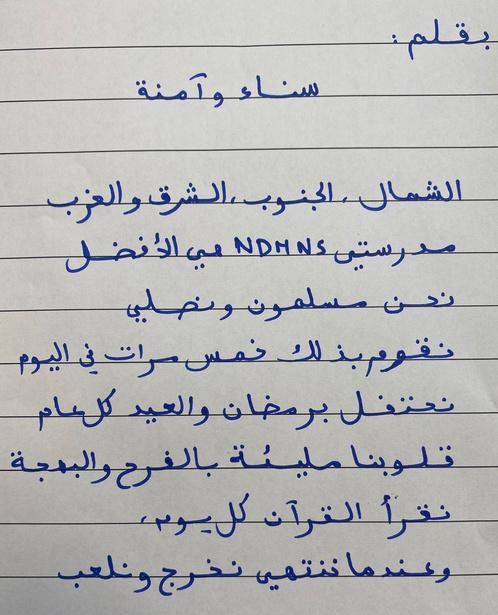 بقلم:
سناء وآمنة
الشمال، الجنوب، الشرق والغرب
مدرستي NDMNS هي الأفضل
نحن مسلمون ونصلي
نقوم بذلك خمس مرات في اليوم
نحتفل برمضان والعيد كل عام
قلوبنا مليئة بالفرح والبهجة
نقرأ القرآن كل يوم،
وعندما ننتهي نخرج ونلعب